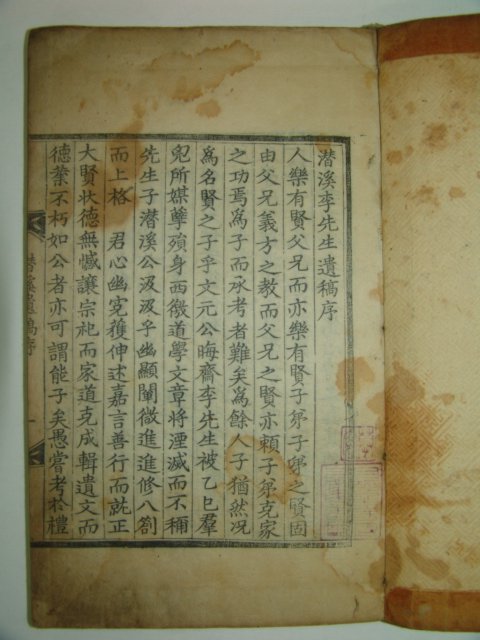 潛溪李先生遺稿序
人樂有賢父兄而亦樂有賢子弟子弟之賢固
由父兄義方之教而父兄之賢亦賴子弟克家
之功焉爲子而承考者難矣爲餘人子猶然况
爲名賢之子乎文元公晦齋李先生被乙巳羣
兇所媒孽殞身西徼道學文章將湮滅而不稱
先生子潜溪公汲汲乎幽顯闡微進進修八劄
而上格　君心幽寃獲伸述嘉言善行而就正
大賢狀德無憾讓宗祀而家道克成輯遺文而
德業不朽如公者亦可謂能子矣愚嘗考於禮
潜溪遺稿序
一